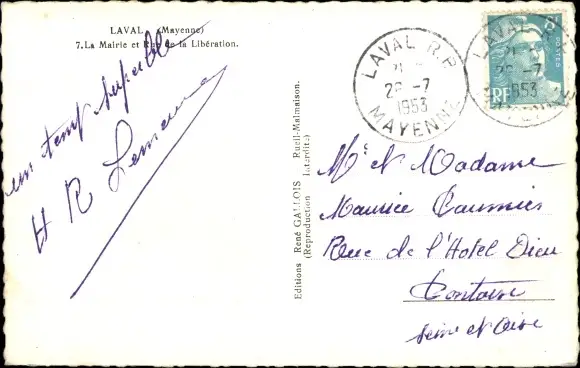 LAVAL (Mayenne)
7. La Mairie et Rue de la Libération.
un temps superbe
H R
Editions René GALLOIS Rueil-Malmaison.
(Reproduction Interdite)
LAVAL R.P.
28 -7
1953
MAYENNE
LAVAL R.P.
28 -7
1953
POSTES
RF
Mr et Madame
Maurice
Rue de l'Hotel Dieu
Pontoise
Seine et Oise